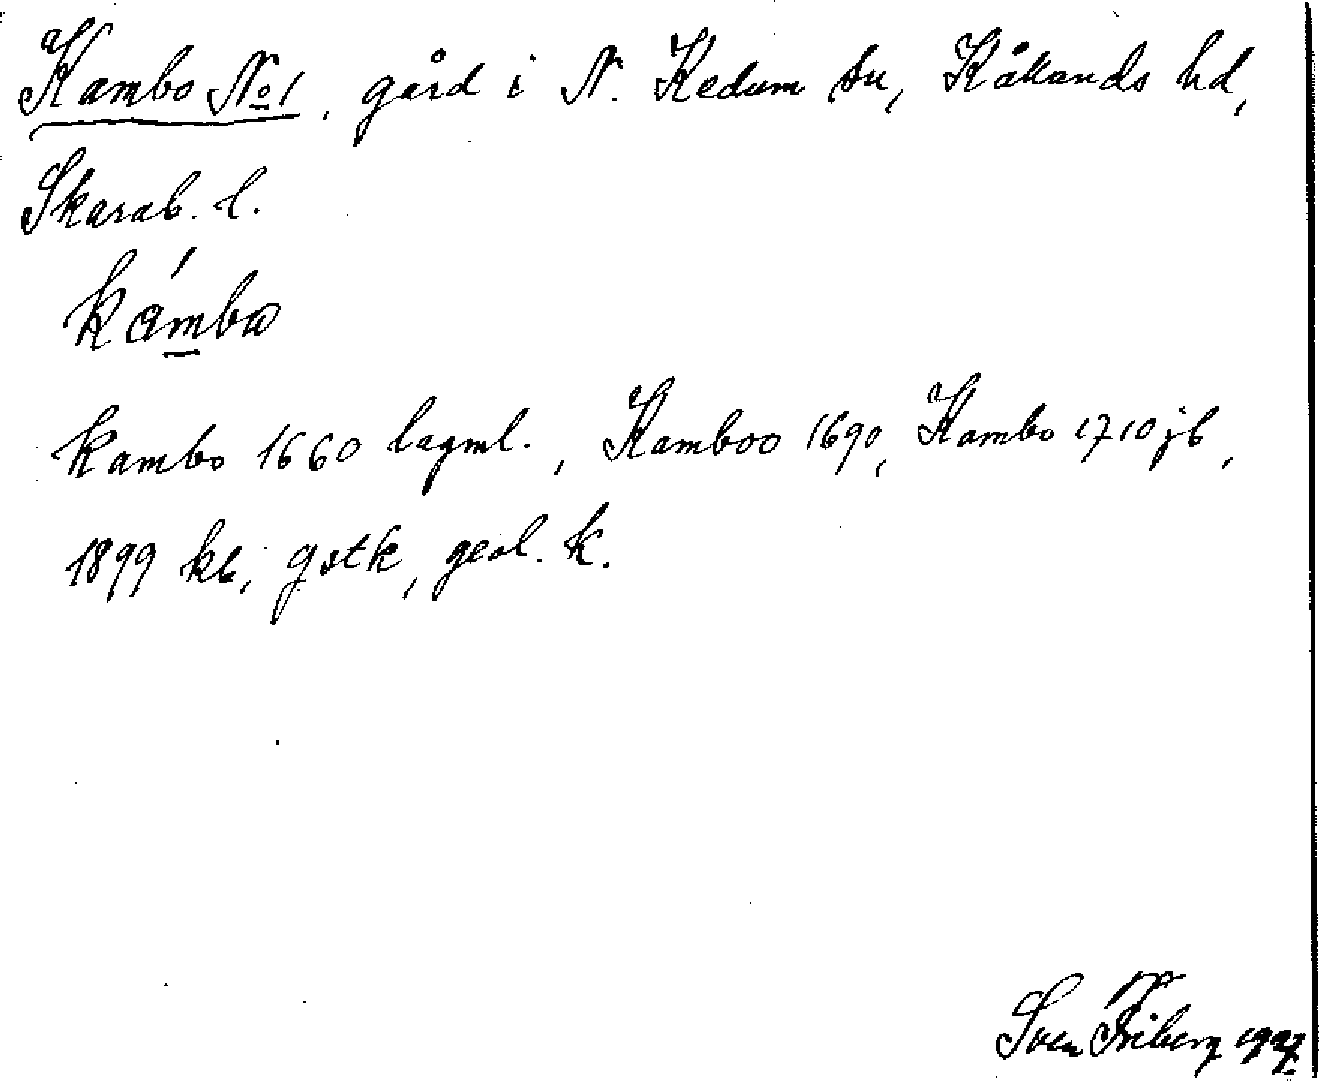 Kambo No 1, gård i N. Kedum sn, Kållands hd,
Skarab. l.
kámbɷ
Kambo 1660 lagml., Kamboo 1690, Kambo 1710 jb,
1899 kb, gstk, geol. k.
Sven Friberg